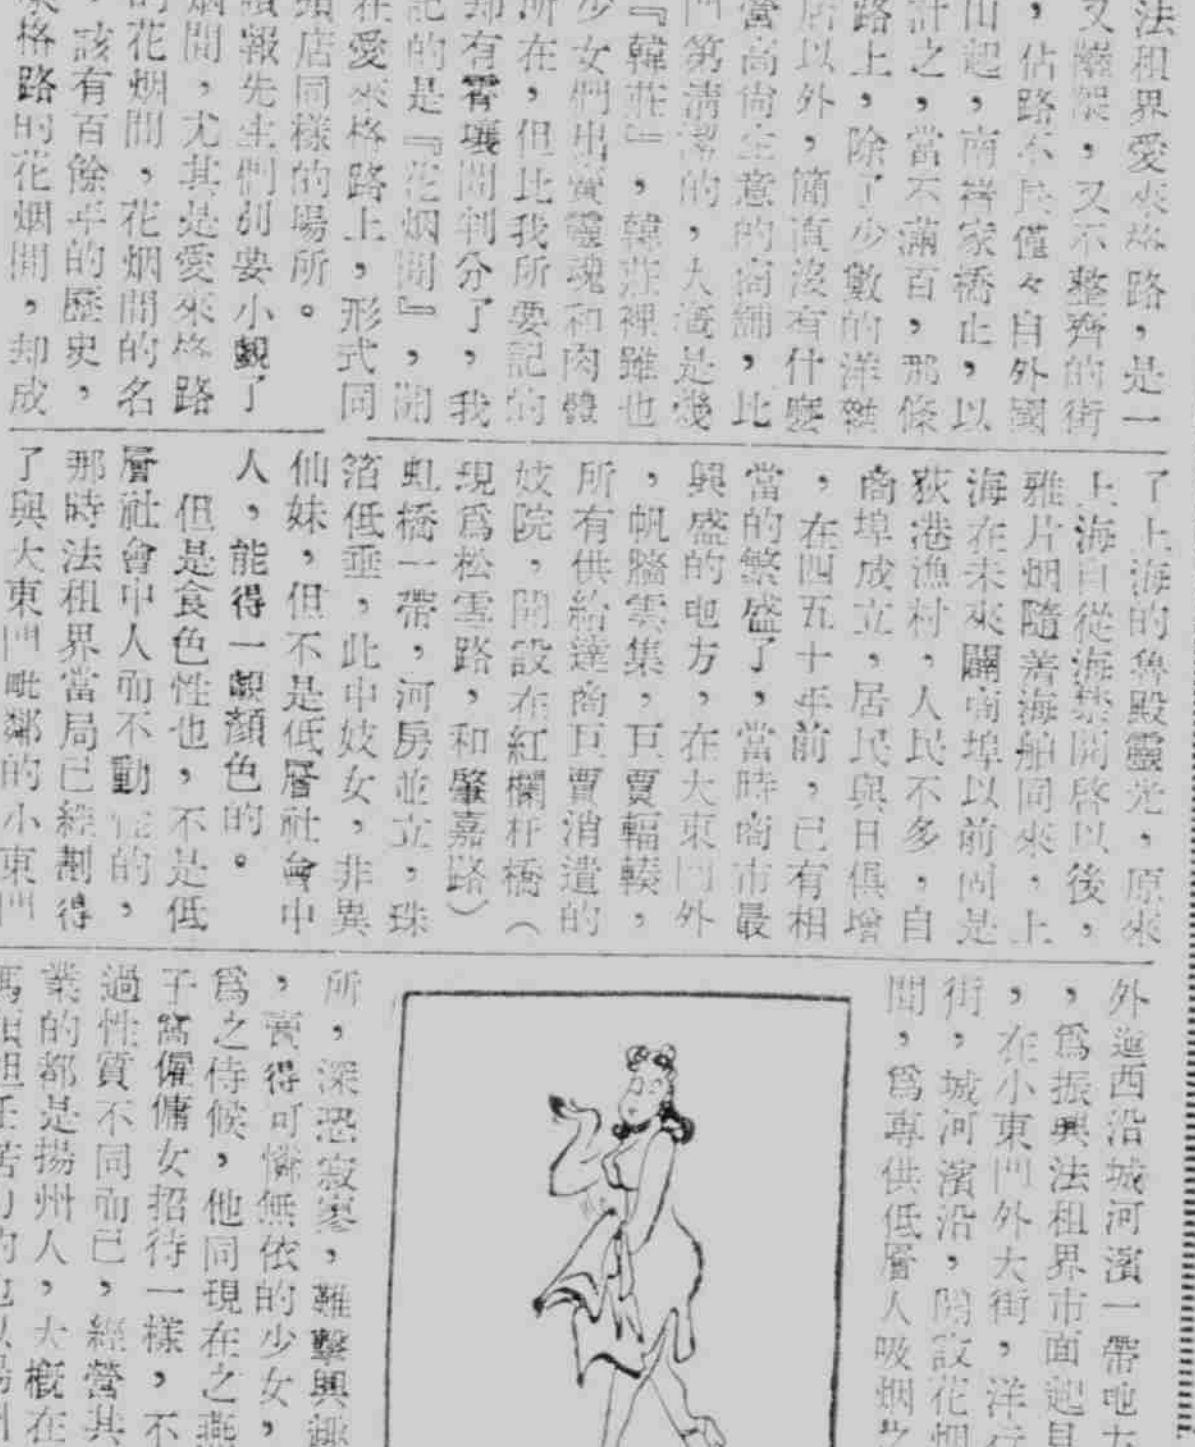 法租界愛來格路，是一
又　　，又不整齊的街
，佔路不　僅々自外國
山起，南　家橋止，以
計之，當不滿百，那條
路上，除了少數的洋雜
店以外，簡直沒有什麼
當高尚生意的商舖，比
門第清潔的，大概是幾
『韓莊』，韓莊裡雖也
少女們出賣靈魂和肉體
所在，但比我所要記的
却有霄壤間判分了，我
記的是『花烟間』，開
在愛來格路上，形式同
頭店同樣的場所。
讀報先生們別要小覷了
烟間，尤其是愛來格路
的花烟間，花烟間的名
，該有百餘年的歷史，
來格路的花烟間，却成
了上海的魯殿靈光，原來
上海自從海禁開啓以後，
雅片烟隨着海舶同來，上
海在未來闢商埠以前固是
荻港漁村，人民不多，自
商埠成立，居民與日俱增
，在四五十年前，已有相
當的繁盛了，當時商市最
興盛的地方，在大東門外
，帆牆雲集，巨賈輻輳，
所有供給達商巨賈消遣的
妓院，開設在紅欄杆橋（
現爲松雪路，和肇嘉路）
虹橋一帶，河房並立，珠
箔低垂，此中妓女，非異
仙妹，但不是低層社會中
人，能得一覩顏色的。
但是食色性也，不是低
層社會中人而不動心的，
那時法租界當局已經劃得
了與大東門毗鄰的小東門
外迤西沿城河濱一帶地方
，爲振興法租界市面起見
，在小東門外大街，洋行
街，城河濱沿，開設花烟
間，爲專供低層人吸烟之
所，深恐寂寞，難擊興趣
，賣得可憐無依的少女，
爲之侍候，他同現在之燕
子窩僱傭女招待一樣，不
過性質不同而已，經營其
業的都是揚州人，大概在